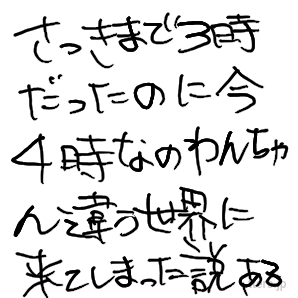 さっきまで3時
だったのに今
4時なのわんちゃ
ん違う世界に
来てしまった説ある